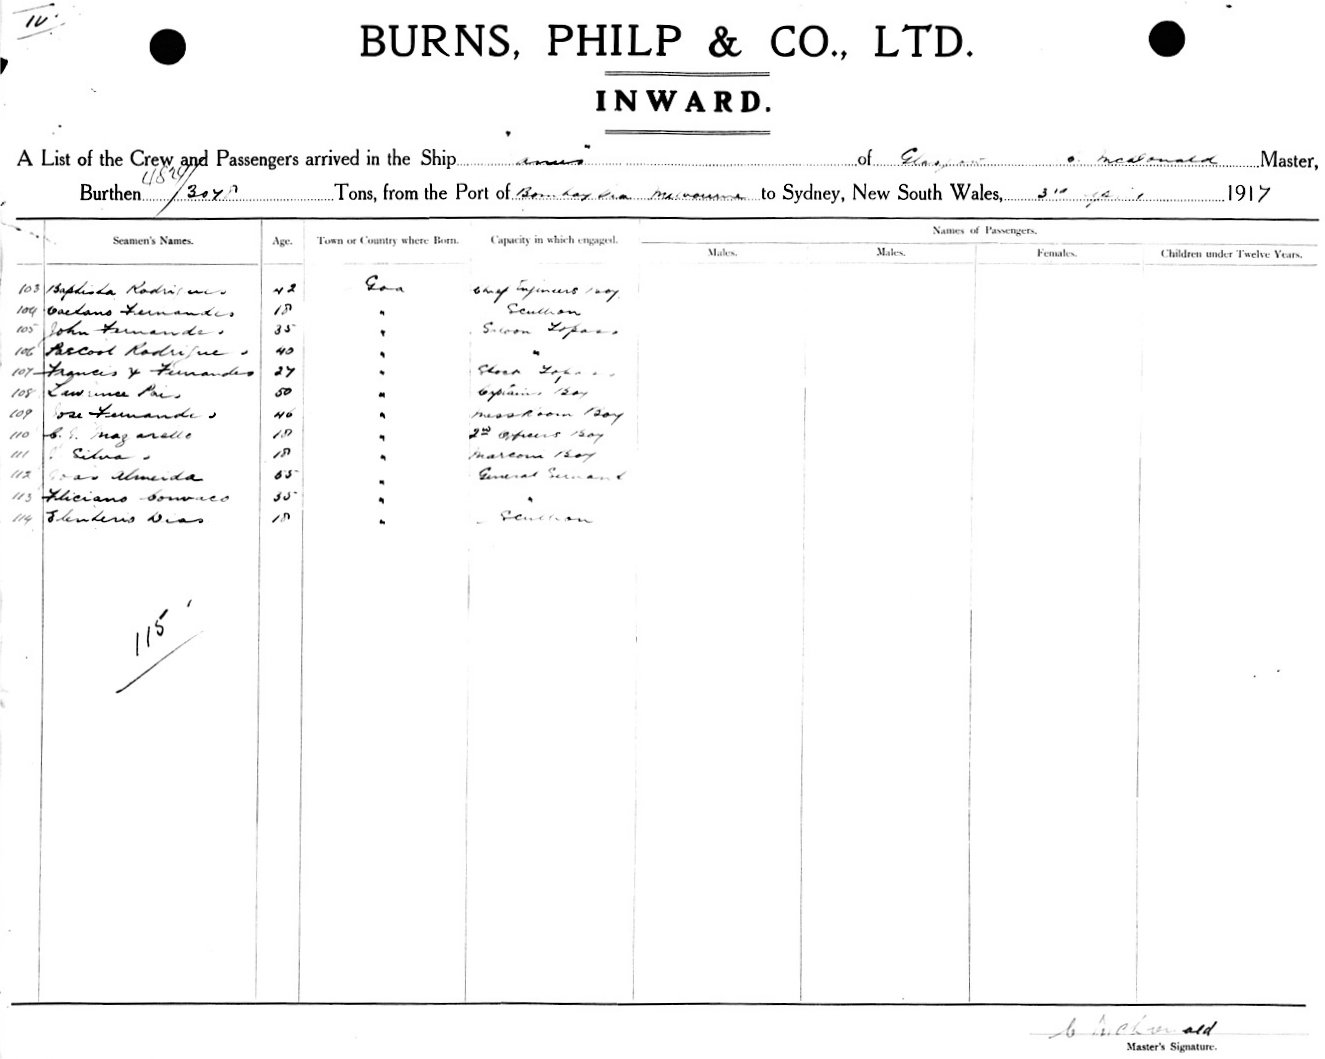 BURNS, PHILP & CO., LTD.
INWARD.
A List of the Crew and Passengers arrived in the Ship of Glasgow McDonald Master,
4824
Burthen Tons, from the Port of Bombay via Melbourne to Sydney, New South Wales, 3rd 1917
Seamen's Names. Age. Town or Country where Born. Capacity in which engaged. Names of Passengers.
Males. Males. Females. Children under Twelve Years.
103 Baptista Rodrigues 42 Goa Chief Engineers Boy
104 Caetano Fernandes 18 " Scullion
105 John Fernandes 35 " Saloon Topass
106 Rodrigues 40 " "
107 Francis X Fernandes 27 " Topass
108 Lawrence Pais 50 " Captains Boy
109 Jose Fernandes 46 " Messroom Boy
110 C. 18 " 2nd Officers Boy
111 Silva 18 " Marconi Boy
112 Almeida 55 " General Servant
113 Feliciano 35 " "
114 Dias 18 " Scullion
115
Master's Signature.